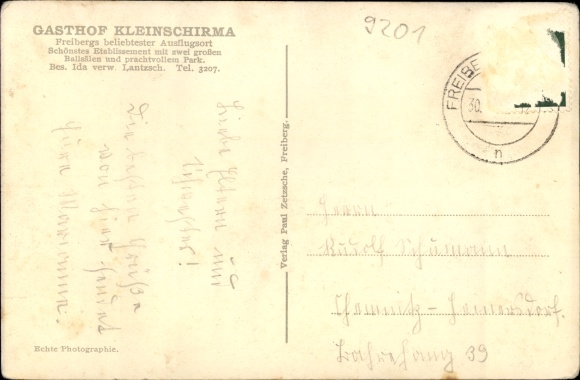 GASTHOF KLEINSCHIRMA
Freibergs beliebtester Ausflugsort
Schönstes Etablissement mit zwei großen
Ballsälen und prachtvollem Park.
Bes. Ida verw. Lantzsch. Tel. 3207.
9201
FREIBE
30.
n
Liebe Eltern und
Schwester!
Die besten Grüße
von hier sendet
Eure Marianne.
Verlag Paul Zetzsche, Freiberg.
Herrn
Rudolf Schumann
Chemnitz-Heinersdorf.
39
Echte Photographie.